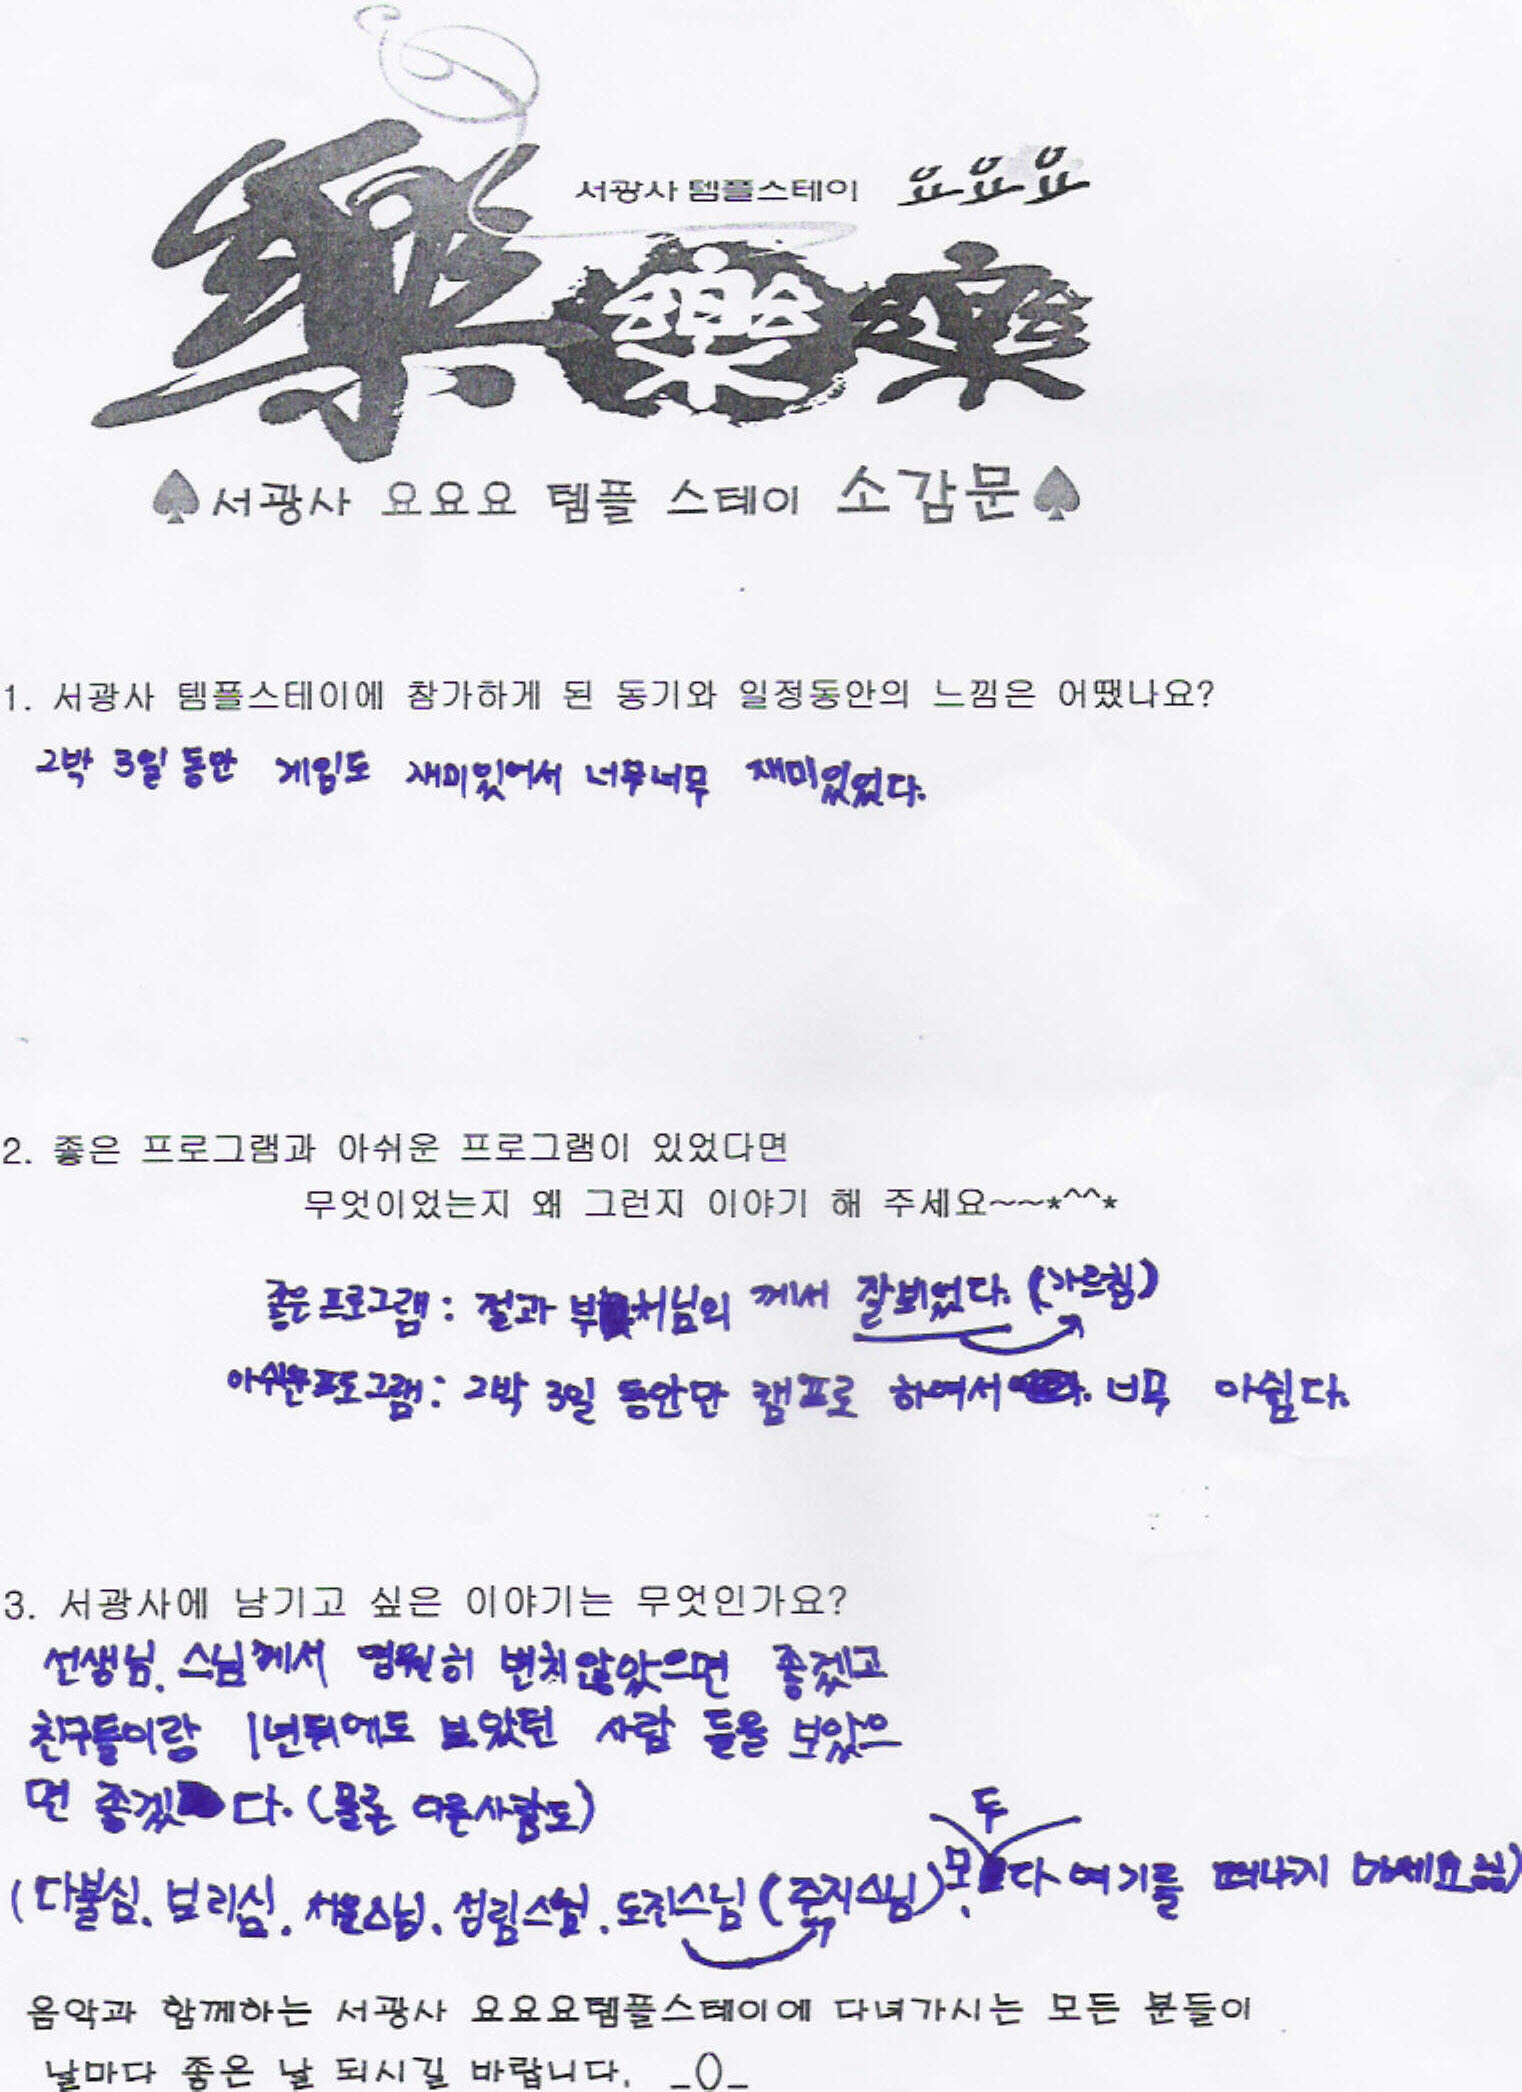 서광사 템플스테이 요요요
樂 樂 樂
♠서광사 요요요 템플 스테이 소감문♠
1. 서광사 템플스테이에 참가하게 된 동기와 일정동안의 느낌은 어땠나요?
2박 3일 동안 게임도 재미있어서 너무너무 재미있었다.
2. 좋은 프로그램과 아쉬운 프로그램이 있었다면
무엇이었는지 왜 그런지 이야기 해 주세요~~*^^*
좋은프로그램 : 절과 부처님의 께서 잘보이었다. (가르침)
아쉬운프로그램 : 2박 3일 동안만 캠프로 하여서 너무 아쉽다.
3. 서광사에 남기고 싶은 이야기는 무엇인가요?
선생님, 스님께서 영원히 변치않았으면 좋겠고
친구들이랑 1년뒤에도 보았던 사람 들을 보았으
면 좋겠다. (물론 다른사람도)
(다불심, 보리심, 스님, 스님, 도진스님 (주지스님) 모두다 여기를 떠나지 마세요)
음악과 함께하는 서광사 요요요템플스테이에 다녀가시는 모든 분들이
날마다 좋은 날 되시길 바랍니다. _()_